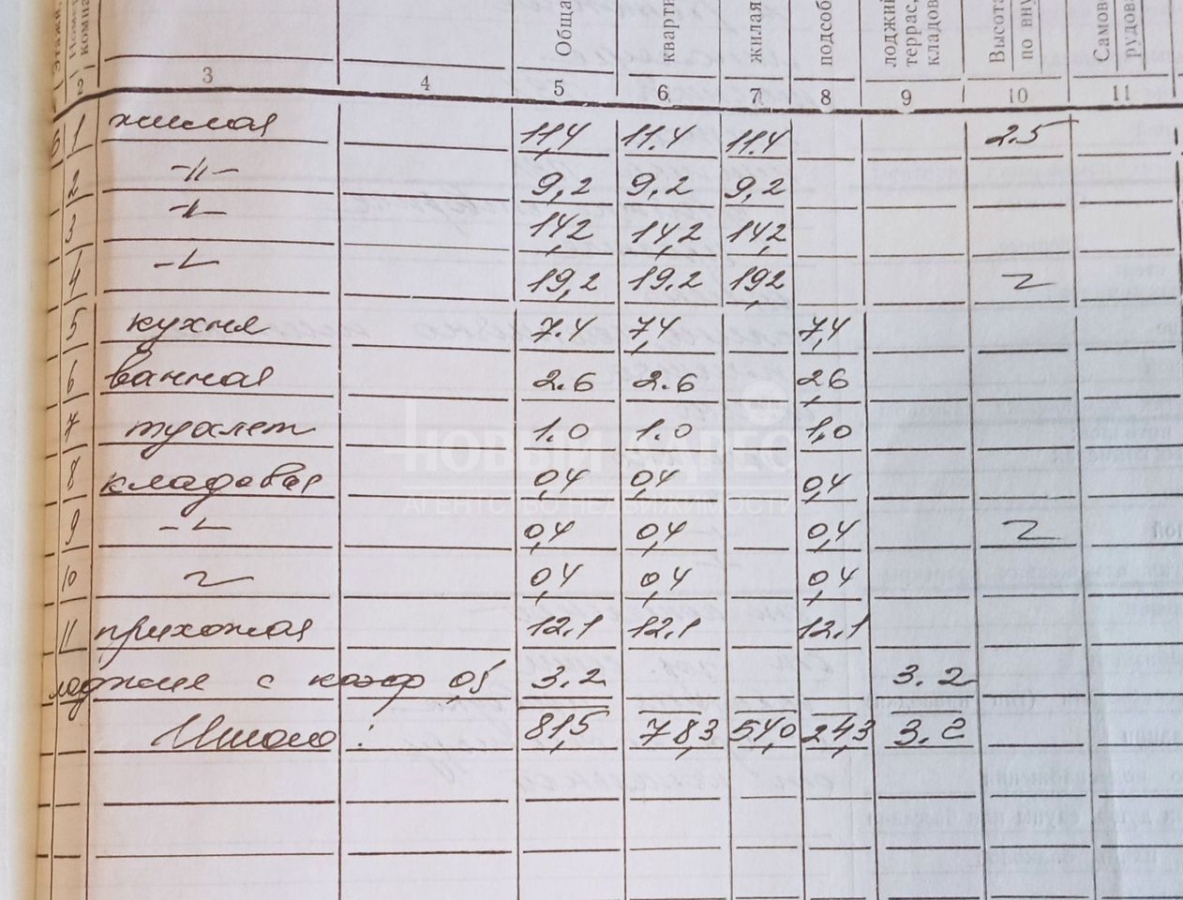 Этаж.
Номер
компл
Общая
кварти
жилая
подсоб
лоджий
террас,
кладов
Высота
по вну
Самово
рудова
1 2 3 4 5 6. 7. 8 9 10 11
6 1 жилая 11,4 11.4 11.4 2.5
2 -"- 9,2 9,2 9,2
3 -"- 14,2 14,2 14,2
4 -"- 19,2 19,2 19,2 ~
5 кухня 7.4 7,4 7,4
6 ванная 2.6 2.6 2,6
7 туалет 1.0 1.0 1,0
8 кладовая 0,4 0,4 0,4
9 -"- 0,4 0,4 0,4 ~
10 ~ 0,4 0,4 0,4
11 прихожая 12.1 12.1 12.1
лоджия с коэф 05 3.2 3.2
Итого: 81,5 78,3 54,0 24,3 3.2
НОВЫЙ АДРЕС
АГЕНТСТВО НЕДВИЖИМОСТИ